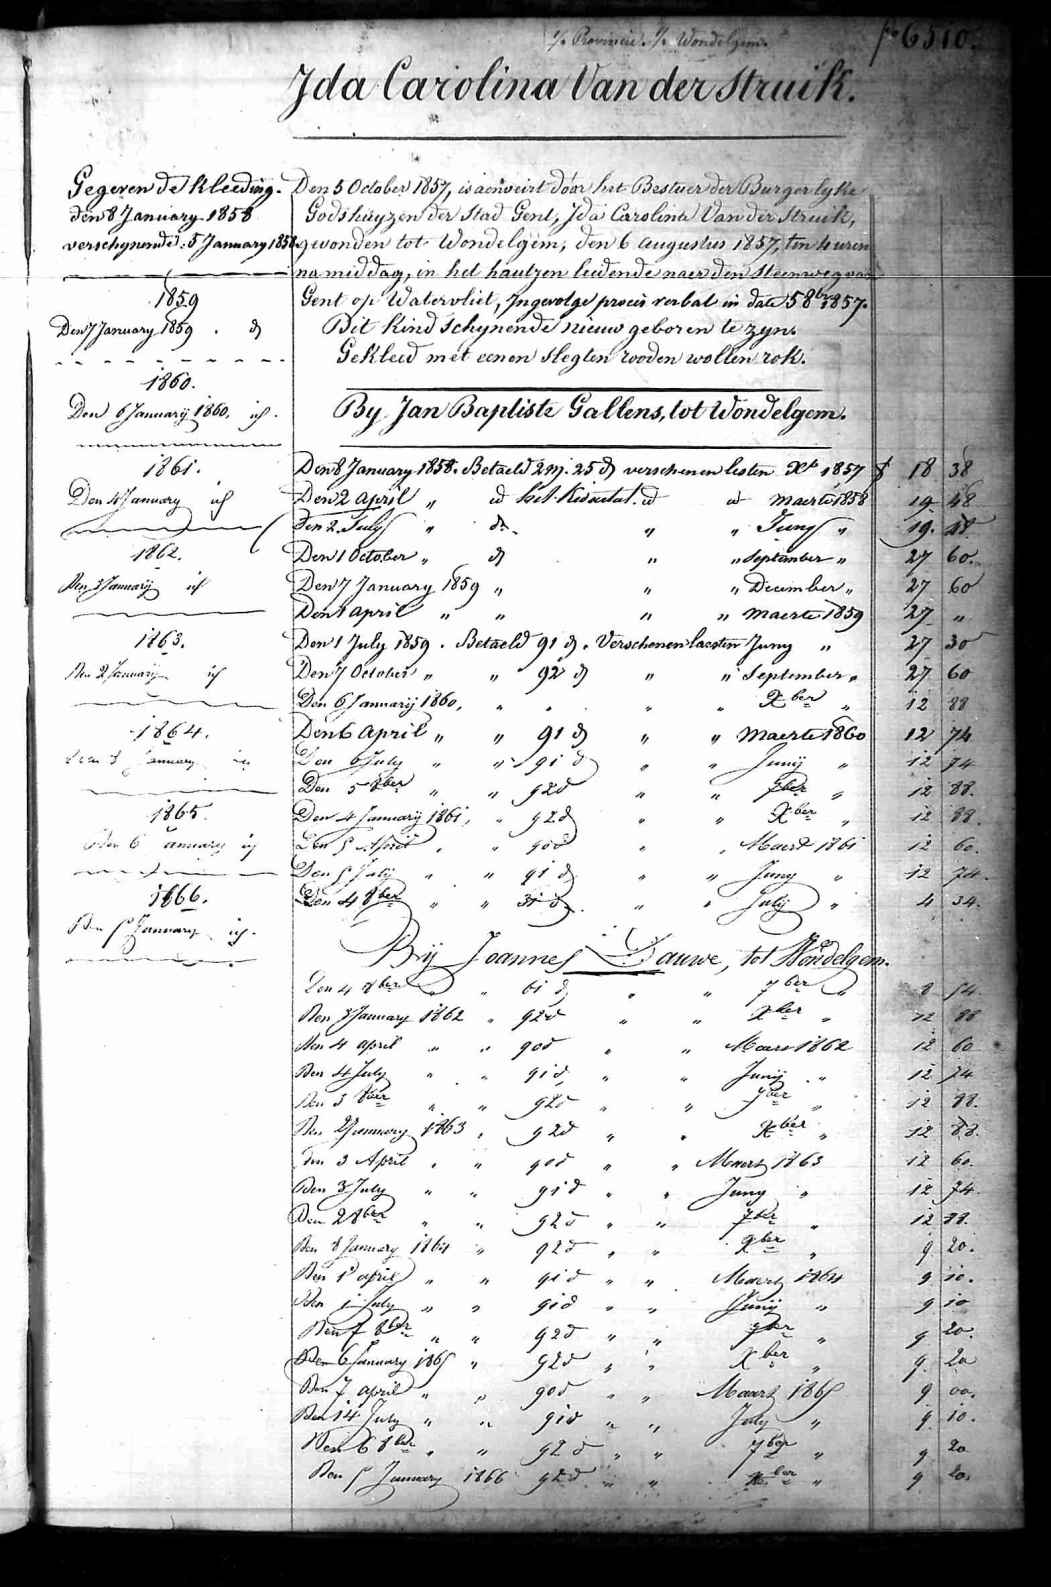 v/e Provincie. v/e Wondelgem.
fo 6510.
Ida Carolina Van der Struik.
Gegeven de Kleeding.
den 8 January 1858
verschynende: 5 January 1858.
1859
Den 7 January 1859 . d
1860.
Den 6 Januarij 1860. id.
1861.
Den 4 January id
1862.
Den 3 Januarij id
1863.
Den 2 January id
1864.
January
1865.
Den 6 January id
1866.
Den 5 January id.
Den 5 October 1857, is aenveirt door het Bestuer der Burgerlyke
Godshuyzen der Stad Gent, Ida Carolina Van der Struik,
gevonden tot Wondelgem, den 6 augustus 1857, ten 4 uren
namiddag, in het hautzen leidende naer den Steenweg van
Gent op Watervliet, Ingevolge proces verbal in date 5 8ber 1857.
Dit Kind schynende nieuw geboren te zyn.
Gekleed met eenen slegten rooden wollen rok.
By Jan Baptiste Gallens, tot Wondelgem.
Den 8 January 1858. Betaeld 2 m. 25 d verschenen lesten Xb 1857 18 38
Den 2 April " id het Kissetat. id id maerte 1858 19. 48
Den 2 July " d. " " Juny " 19. 48
Den 1 October " d " " September " 27 60.
Den 7 January 1859 " " " December " 27 60
Den 1 April " " " " maerte 1859 27 "
Den 1 July 1859 . Betaeld 91 d . Verschenen laesten Juny " 27 30
Den 7 October " " 92 d " " September " 27 60
Den 6 Januarij 1860, " " " " Xber " 12 88
Den 6 April " " 91 d " " maerte 1860 12 74
Den 6 July " " 91 d " " Junij " 12 74
Den 5 8ber " " 92 d " " 7ber " 12 88.
Den 4 Januarij 1861, " 92 d " " Xber " 12 88.
Den 5 April " " 90 d " " Maert 1861 12 60.
Den 5 July " " 91 d " " Juny " 12 74.
Den 4 8ber " " 31 d. " " July " 4 34.
Bij Joannes Dauwe, tot Wondelgem.
Den 4 8ber " " 61 d " " 7ber " 8 54.
Den 3 January 1862 " 92 d " " Xber " 12 88
Den 4 april " " 90 d " " Maert 1862 12 60
Den 4 July " " 91 d " " Junij " 12 74
Den 3 8ber " " 92 d " " 7ber " 12 88.
Den 2 January 1863 " 92 d " " Xber " 12 88.
den 3 April " " 90 d " " Maert 1863 12 60.
Den 3 July " " 91 d " " Juny " 12 74.
Den 2 8ber " " 92 d " " 7ber " 12 88.
Den 8 January 1864 " 92 d " " Xber " 9 20.
Den 1 april " " 91 d " " Maert 1864 9 10.
Den 1 July " " 91 d " " Junij " 9 10
Den 7 8ber " " 92 d " " 7ber " 9 20.
Den 6 January 1865 " 92 d " " Xber " 9. 20
Den 7 april " " 90 d " " Maert 1865 9 00.
Den 14 July " " 91 d " " July " 9 10.
Den 6 8ber " " 92 d " " 7ber " 9 20
Den 5 January 1866 92 d " " Xber " 9 20.